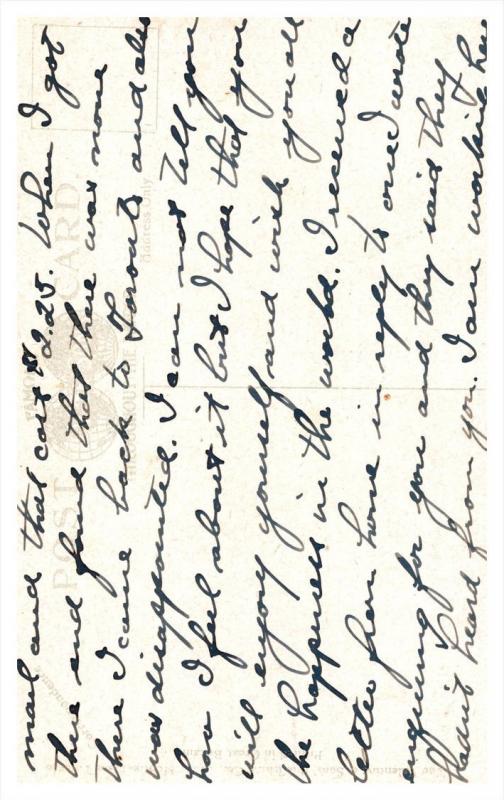 mail and that cost $2.25. When I got
there and found that there was none
there I came back to Toronto and also
was disappointed. I can not tell you
how I feel about it but I hope that you
will enjoy yourself and wish you all
the happiness in the world. I received a
letter from home in reply to one I wrote
enquiring for you and they said they
hadn't heard from you. I am working here
POST CARD
FAMOUS
THROUGHOUT THE
Address Only
Correspondence
Valentine & Sons
Printed in Great Britain